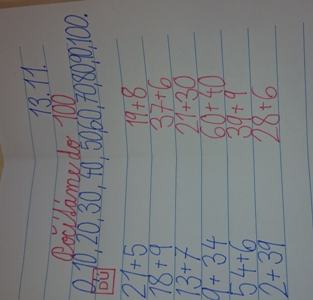 13. 11.
Počítáme do 100
0, 10, 20, 30, 40, 50, 60, 70, 80, 90, 100.
DÚ
21+5 19+8
18+9 37+6
13+7 21+30
9+34 60+40
54+6 39+9
2+39 28+6